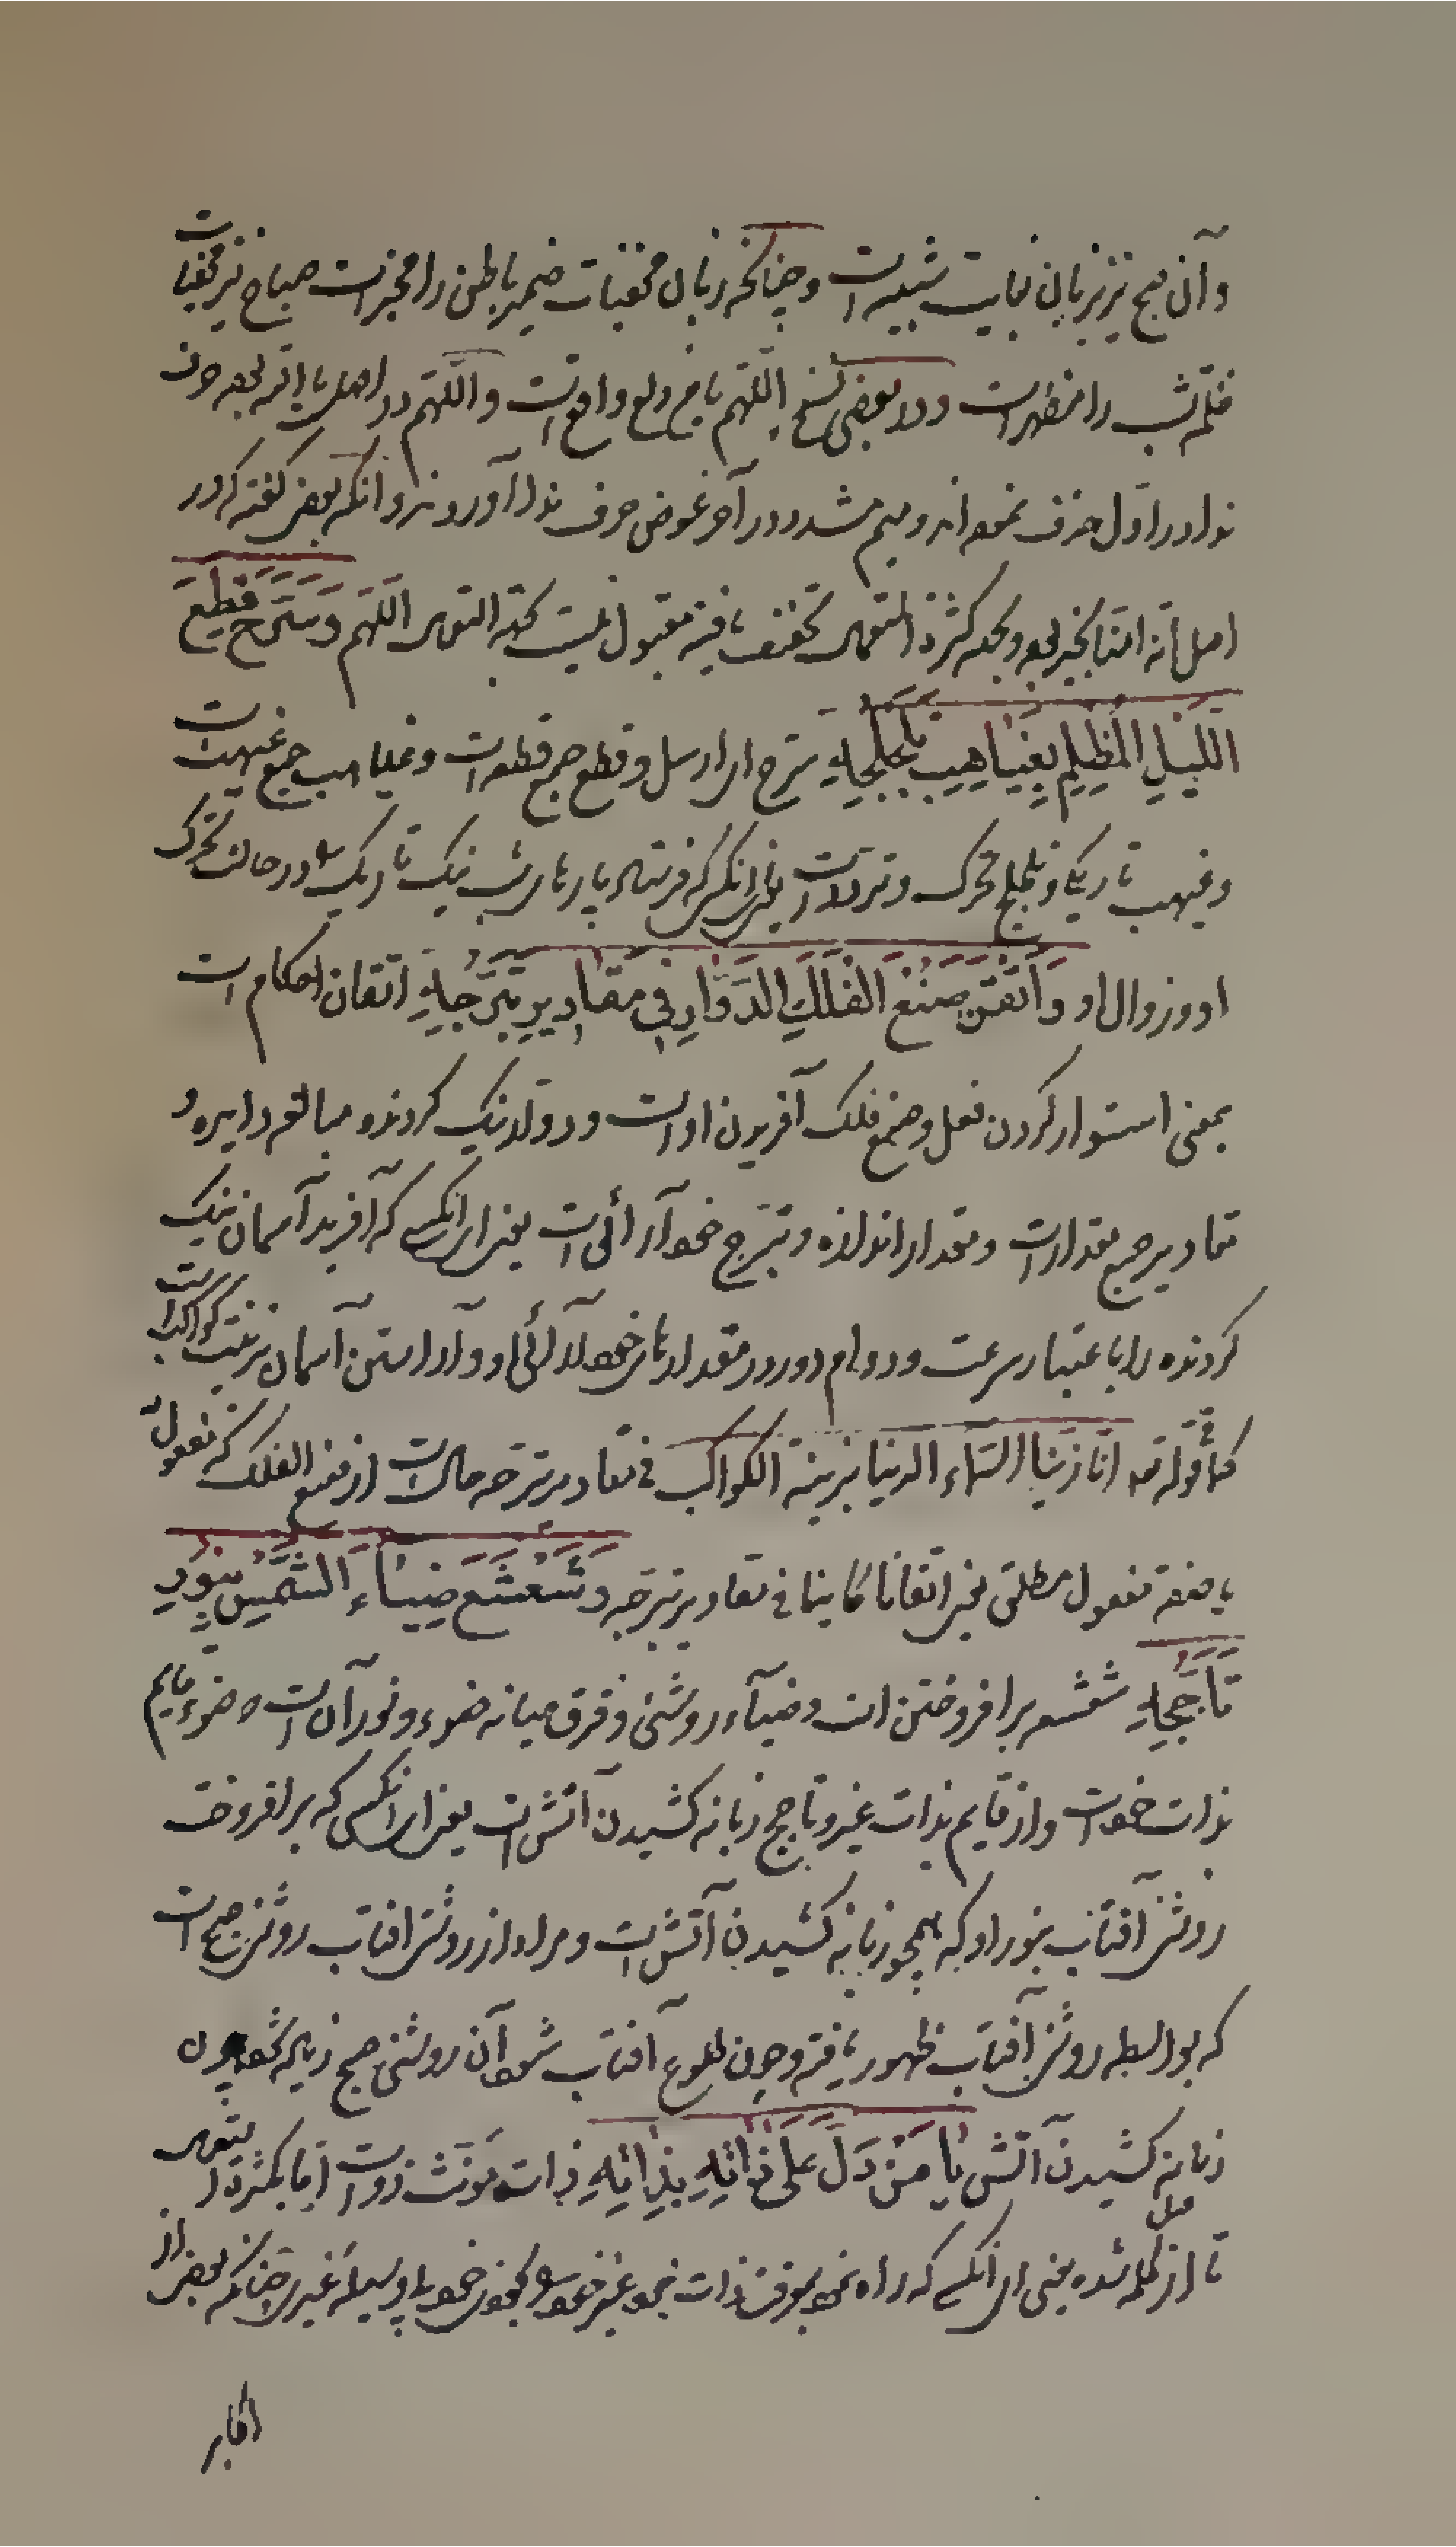 وآن صبح نیز بزبان بغایت شبیه است و چنانکه زبان مخفیات ضمیر باطن را مخبر است صباح نیز مخفیات
ظلمت شب را مظهر است و در بعضی نسخ اللهم یا من دلع واقع است و اللهم در اصل یا الله بوده حرف
ندا در اول حذف نموده اند و میم مشدد در آخر عوض حرف ندا آوردند و آنکه بعضی گفته که در
اصل یا الله امنا بخیر بوده و بجهه کثرة استعمال تخفیف یافته مقبول نیست اللهم وَسَرَّحَ قِطَعَ
اللَّیْلِ الْمُظْلِمِ بِغَیاهِبِ تَلَجْلُجِهِ سرح ای ارسل و قطع جمع قطعه است و غیاهب جمع غیهب است
و غیهب تاریکی و تلجلج تحرک و تردد است یعنی ای آنکس که فرستاد پارهای شب نیک تاریک را در حالت تحرک
او و زوال او وَ أَتْقَنَ صُنْعَ الْفَلَكِ الدَّوَّارِ فِی مَقَادِیرِ تَبَرُّجِهِ اتقان احکام است
بمعنی استوار کردن فعل و صنع فلک آفریدن او است و دوار نیک گردنده مبالغه دایره و
مقادیر جمع مقدار است و مقدار اندازه و تبرج خود آرائی است یعنی ای آنکسی که آفرید آسمان نیک
گردنده را باعتبار سرعت و دوام دور در مقدارهای خود آرائی او و آراستن آسمان بزینت کواکب است
کما قوله تع انا زینا السماء الدنیا بزینة الکواکب فی مقادیر تبرجه حال است از صنع الفلک که مفعول است
یا صفة مفعول مطلق یعنی اتقانا کاینا فی مقادیر تبرجه وَ شَعْشَعَ ضِیَاءَ الشَّمْسِ بِنُورِ
تَأَجُّجِهِ شعشعه برافروختن است و ضیاء روشنی و فرق میانه ضوء و نور آن است که ضوء قایم
بذات خود است و نور قایم بذات غیر و تاجج زبانه کشیدن آتش است یعنی ای آنکسی که برافروخت
روشنی آفتاب بنور او که همچو زبانه کشیدن آتش است و مراد از روشنی افتاب روشنی صبح است
که بواسطه روشنی آفتاب ظهور یافته و چون طلوع آفتاب شود آن روشنی صبح زیاده شود چون
زبانه کشیدن آتش یَا مَنْ دَلَّ عَلَى ذَاتِهِ بِذَاتِهِ ذات مونث ذو است اما بکثرة استعمال
تا از کلمه شده یعنی ای آنکسی که راه نمود بمعرفت ذات خود بی وسیله غیری چنانکه بعضی از
اکابر